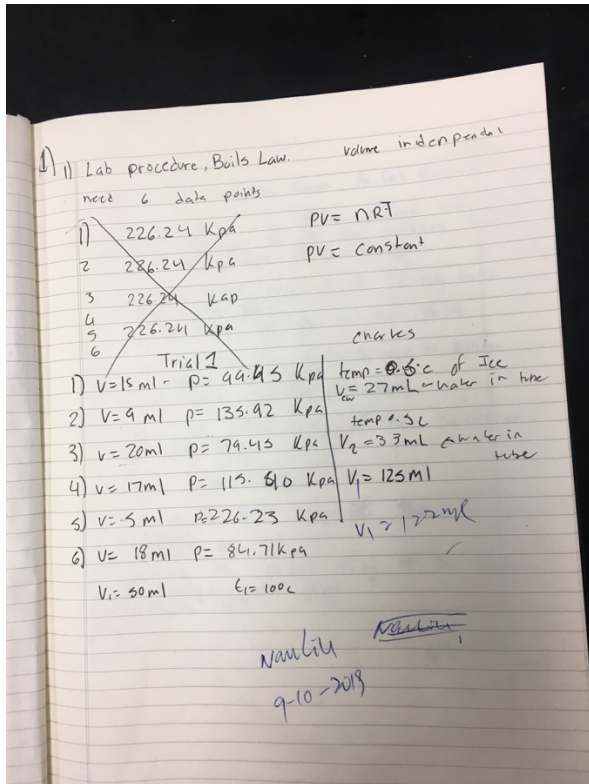 1) 1) Lab procedure, Boils Law. volume independent
need 6 data points
1) 226.24 Kpa
PV = nRT
2 286.24 Kpa
PV = constant
3 226.24 Kap
4
5 226.24 Kpa
6
Trial 1
1) V=15 ml - P= 99.45 Kpa
2) V=9 ml P= 135.92 Kpa
3) V=20ml P= 79.45 Kpa
4) V=17ml P= 115.610 Kpa
5) V=5 ml P=226.23 Kpa
6) V= 18ml P= 84.71Kpa
V1= 50ml t1= 100c
charles
temp = 0.5°c of Ice
V = 27mL - water in tube
temp 0.5c
V2 = 33mL water in
tube
V1 = 125ml
V1 = 122ml
NanLiu NanLiu
9-10-2019